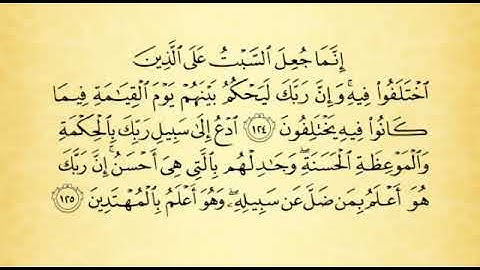 إِنَّمَا جُعِلَ السَّبْتُ عَلَى الَّذِينَ
اخْتَلَفُوا فِيهِ ۚ وَإِنَّ رَبَّكَ لَيَحْكُمُ بَيْنَهُمْ يَوْمَ الْقِيَامَةِ فِيمَا
كَانُوا فِيهِ يَخْتَلِفُونَ ١٢٤ ادْعُ إِلَى سَبِيلِ رَبِّكَ بِالْحِكْمَةِ
وَالْمَوْعِظَةِ الْحَسَنَةِ ۖ وَجَادِلْهُم بِالَّتِي هِيَ أَحْسَنُ ۚ إِنَّ رَبَّكَ
هُوَ أَعْلَمُ بِمَن ضَلَّ عَن سَبِيلِهِ ۖ وَهُوَ أَعْلَمُ بِالْمُهْتَدِينَ ١٢٥